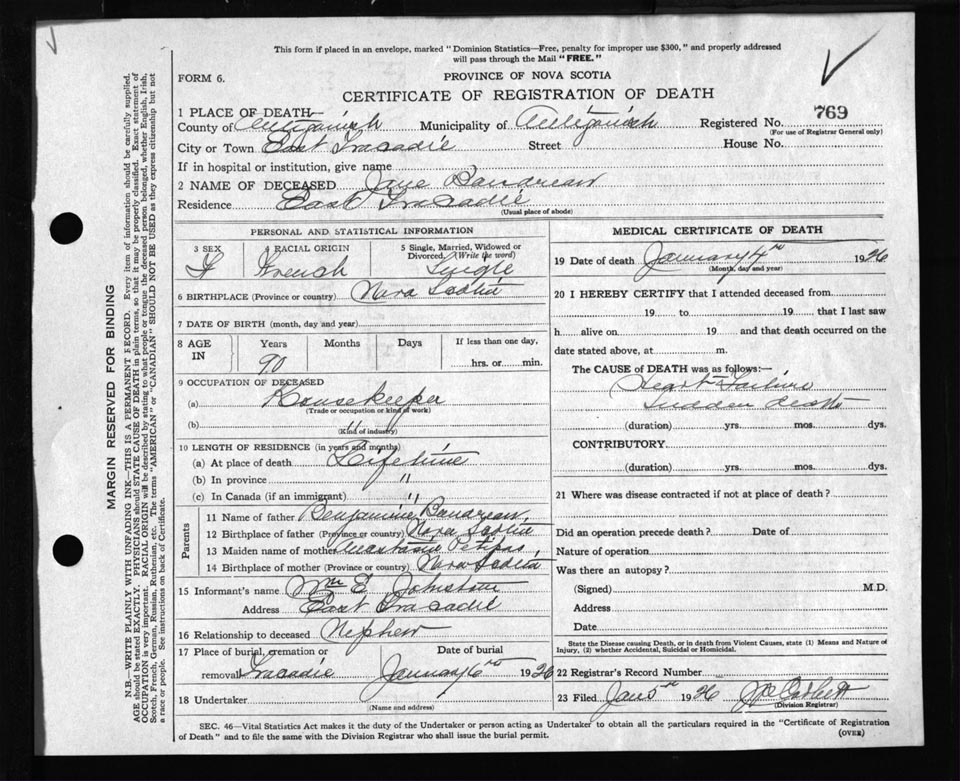 This form if placed in an envelope, marked "Dominion Statistics—Free, penalty for improper use $300," and properly addressed
will pass through the Mail "FREE."
FORM 6.
PROVINCE OF NOVA SCOTIA
CERTIFICATE OF REGISTRATION OF DEATH
1 PLACE OF DEATH—
County of Antigonish Municipality of Antigonish Registered No. 769
(For use of Registrar General only)
City or Town East Tracadie Street House No.
If in hospital or institution, give name
2 NAME OF DECEASED Jane Baudreau
Residence East Tracadie
(Usual place of abode)
PERSONAL AND STATISTICAL INFORMATION
3 SEX F
4 RACIAL ORIGIN French
5 Single, Married, Widowed or Divorced. (Write the word) Single
6 BIRTHPLACE (Province or country) Nova Scotia
7 DATE OF BIRTH (month, day and year)
8 AGE IN Years Months Days If less than one day,
90 hrs. or min.
9 OCCUPATION OF DECEASED
(a) Housekeeper
(Trade or occupation or kind of work)
(b) "
(Kind of industry)
10 LENGTH OF RESIDENCE (in years and months)
(a) At place of death Lifetime
(b) In province "
(c) In Canada (if an immigrant) "
Parents
11 Name of father Benjamine Baudreau
12 Birthplace of father (Province or country) Nova Scotia
13 Maiden name of mother Anastasia Petipas
14 Birthplace of mother (Province or country) Nova Scotia
15 Informant's name Wm E Johnston
Address East Tracadie
16 Relationship to deceased Nephew
17 Place of burial, cremation or removal Tracadie
Date of burial January 6th 1926
18 Undertaker
(Name and address)
MEDICAL CERTIFICATE OF DEATH
19 Date of death January 4th 1926
(Month, day and year)
20 I HEREBY CERTIFY that I attended deceased from
19 to 19 that I last saw
h alive on 19 and that death occurred on the
date stated above, at m.
The CAUSE of DEATH was as follows:—
Heart Failure
Sudden death
(duration) yrs. mos. dys.
CONTRIBUTORY
(duration) yrs. mos. dys.
21 Where was disease contracted if not at place of death?
Did an operation precede death? Date of
Nature of operation
Was there an autopsy?
(Signed) M.D.
Address
Date
State the Disease causing Death, or in death from Violent Causes, state (1) Means and Nature of
Injury, (2) whether Accidental, Suicidal or Homicidal.
22 Registrar's Record Number
23 Filed Jan 5th 1926 Corbett
(Division Registrar)
SEC. 46—Vital Statistics Act makes it the duty of the Undertaker or person acting as Undertaker to obtain all the particulars required in the "Certificate of Registration
of Death" and to file the same with the Division Registrar who shall issue the burial permit.
(OVER)
MARGIN RESERVED FOR BINDING
N.B.—WRITE PLAINLY WITH UNFADING INK—THIS IS A PERMANENT RECORD. Every item of information should be carefully supplied.
AGE should be stated EXACTLY. PHYSICIANS should STATE CAUSE OF DEATH in plain terms, so that it may be properly classified. Exact statement of
OCCUPATION is very important. RACIAL ORIGIN will be described by stating to what people or tongue the deceased person belonged, whether English, Irish,
Scotch, French, German, Russian, Ruthenian, etc. The terms "AMERICAN" or "CANADIAN" SHOULD NOT BE USED as they express citizenship but not
a race or people. See instructions on back of Certificate.